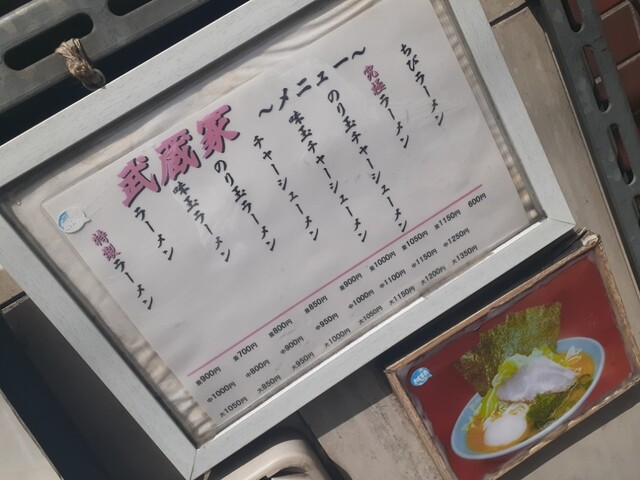 武蔵家 〜メニュー〜
ちびラーメン
究極ラーメン
のり玉チャーシューメン
味玉チャーシューメン
チャーシューメン
のり玉ラーメン
味玉ラーメン
ラーメン
特製ラーメン
並900円 並700円 並800円 並850円 並900円 並1000円 並1050円 並1150円 600円
中1000円 中800円 中900円 中950円 中1000円 中1100円 中1150円 中1250円
大1050円 大850円 大950円 大1000円 大1050円 大1150円 大1200円 大1350円